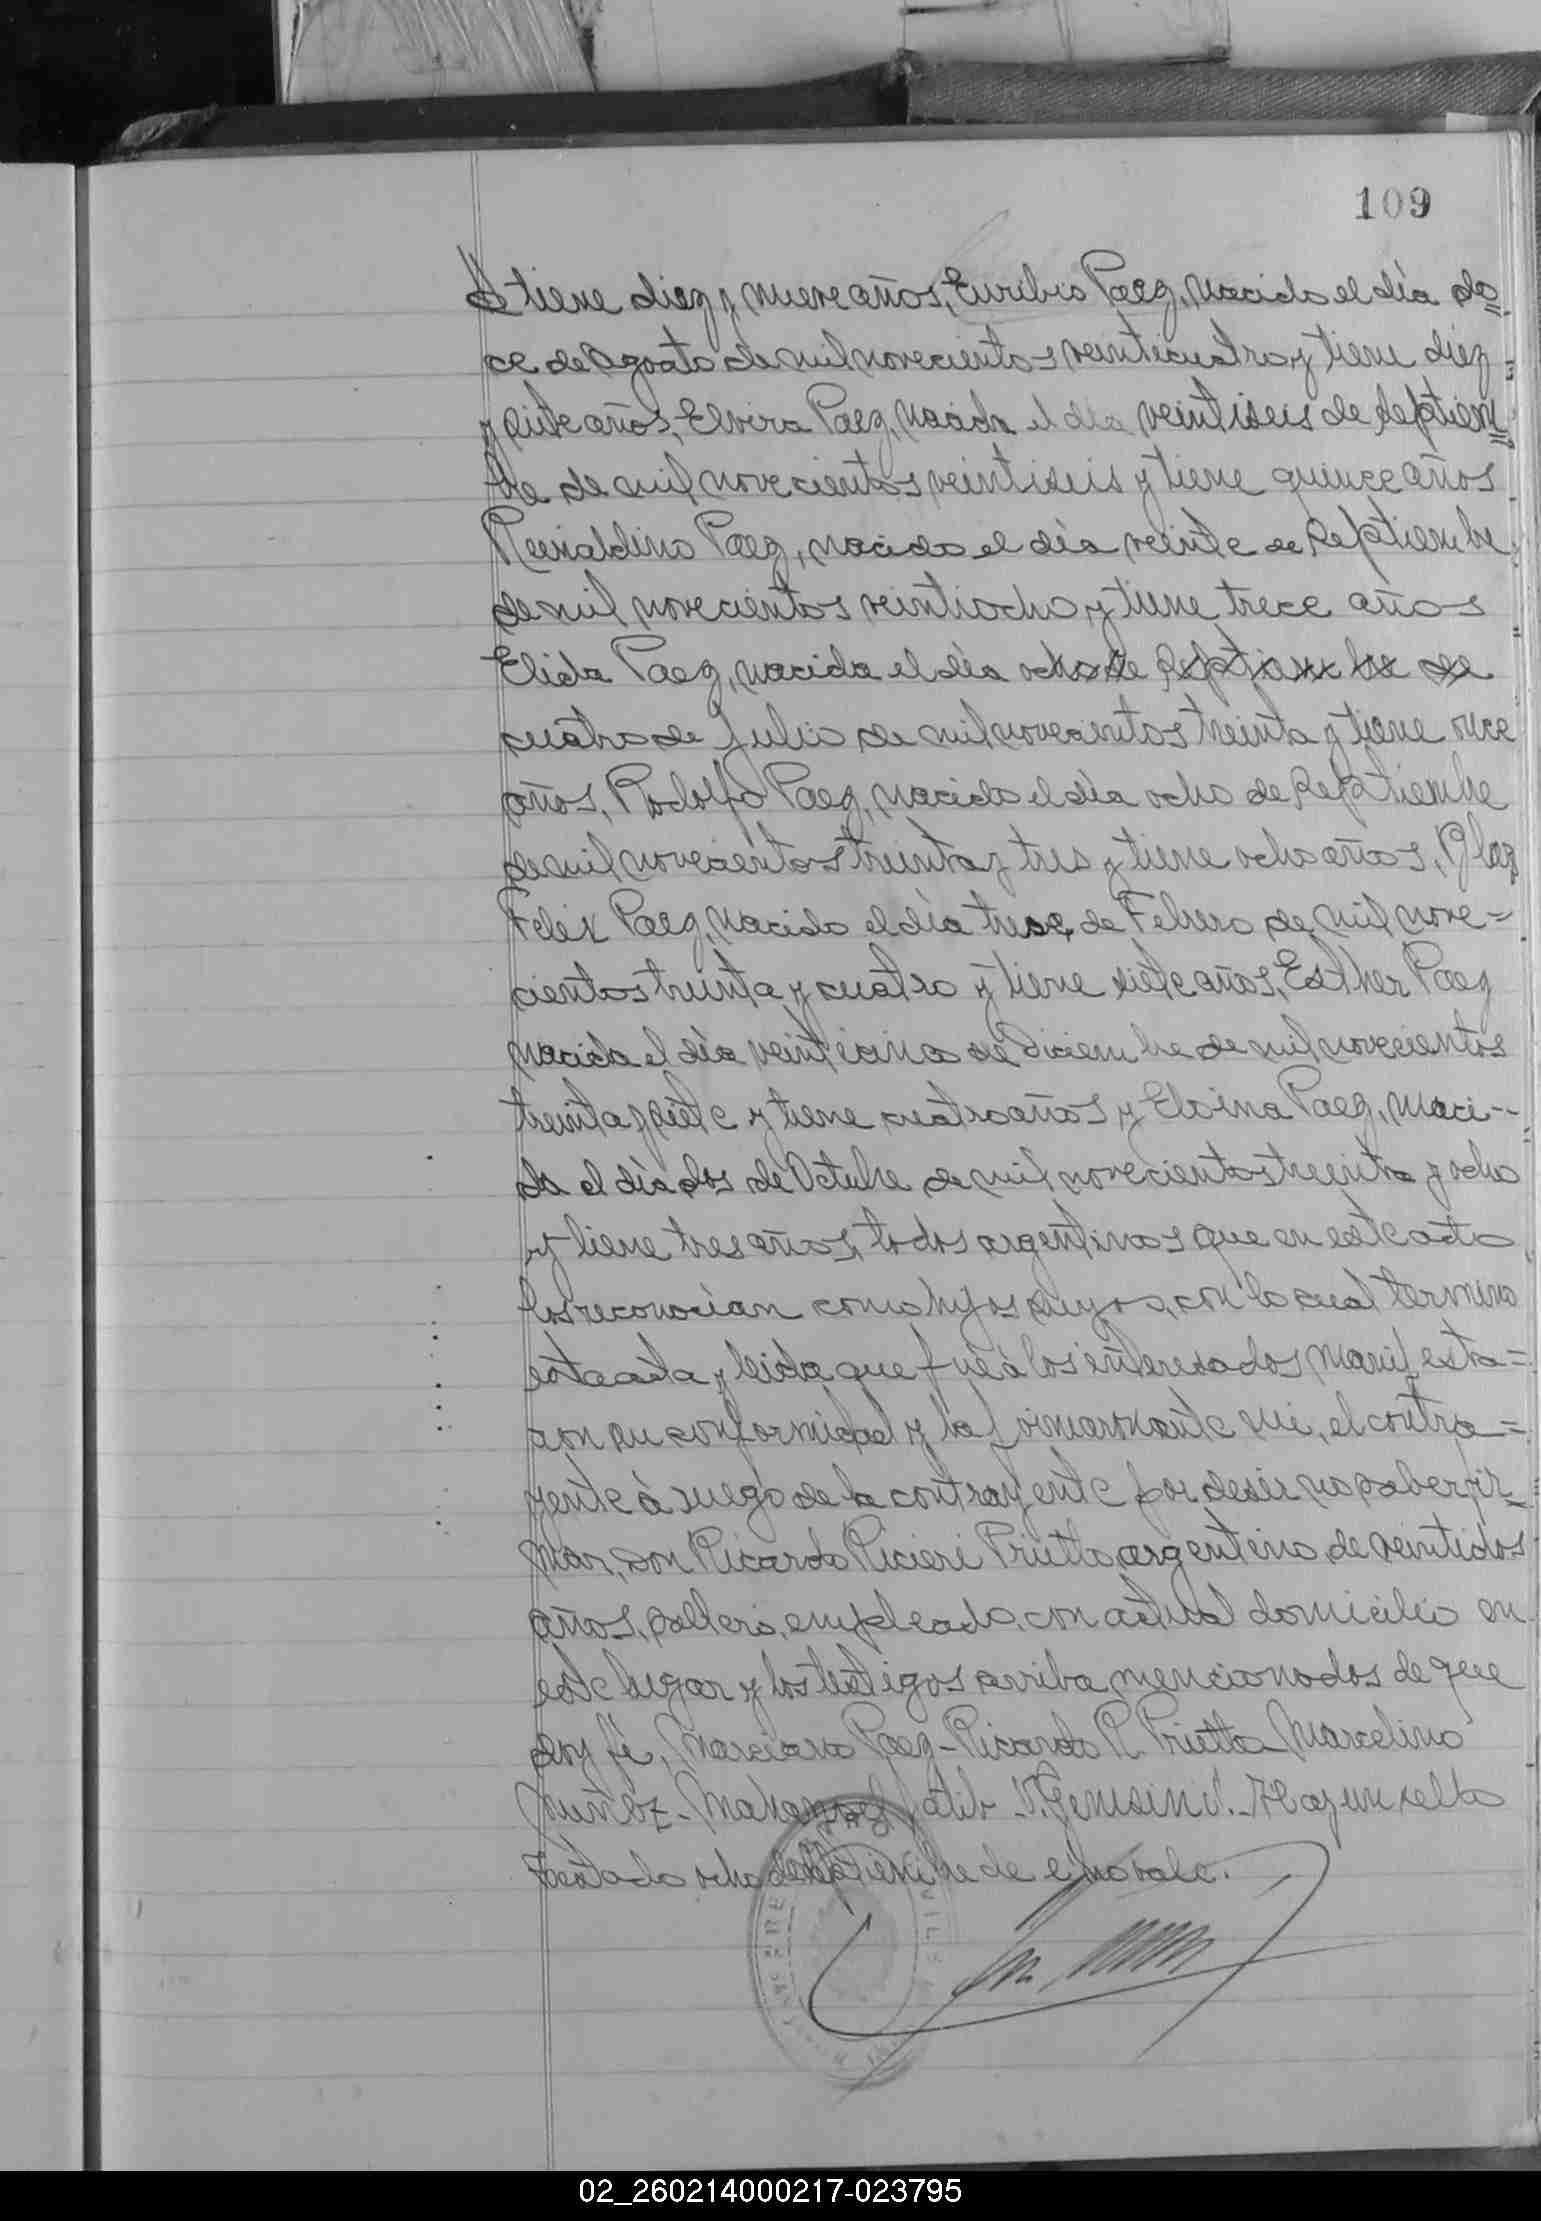 109
tiene diez y nueve años, Euribio Paez, nacido el día do=
ce de Agosto de mil novecientos veinticuatro y tiene diez
y siete años, Elvira Paez, nacida el día veintiseis de Septiem=
bre de mil novecientos veintiseis y tiene quince años
Reinaldino Paez, nacido el día veinte de Septiembre
de mil novecientos veintiocho y tiene trece años
Elida Paez, nacida el día ocho de Septiembre de
cuatro de Julio de mil novecientos treinta y tiene once
años, Rodolfo Paez, nacido el día ocho de Septiembre
de mil novecientos treinta y tres y tiene ocho años, Blaz
Felix Paez, nacido el día trece de Febrero de mil nove=
cientos treinta y cuatro y tiene siete años, Esther Paez
nacida el día veinticinco de Diciembre de mil novecientos
treinta y siete y tiene cuatro años y Elvina Paez, naci--
da el día dos de Octubre de mil novecientos treinta y ocho
y tiene tres años, todos argentinos que en este acto
los reconocían como hijos suyos, con lo cual termino
esta acta y leida que fué á los interesados manifesta=
ron su conformidad y la firmaron ante mi, el contra=
yente á ruego de la contrayente por desir no saber fir=
mar, don Ricardo Ricieri Prietto argentino de veintidos
años, soltero, empleado, con actual domicilio en
este lugar y los testigos arriba mencionados de que
doy fé, Marciano Paez - Ricardo R. Prietto - Marcelino
Muñoz - Satib - V. Gemsini. - Hay un sello
Testado ocho de Septiembre de e/ no vale.
02_260214000217-023795